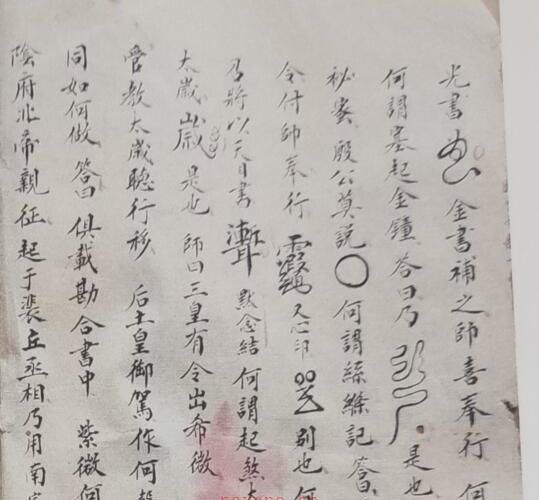 光書 金書補之師喜奉行何
何謂墓起金鐘答曰乃 是也
秘蜜殷公莫說〇何謂絲絛記答曰
令付師奉行 又心印 别也何
乃將以天目書 默念結何謂起煞
太歲歲是也師曰三皇有令出希微
管教太歲聽行移后土皇御駕作何
同如何做答曰俱載勘合書中紫微何
陰府北帝親征起于裴丘丞相乃用南